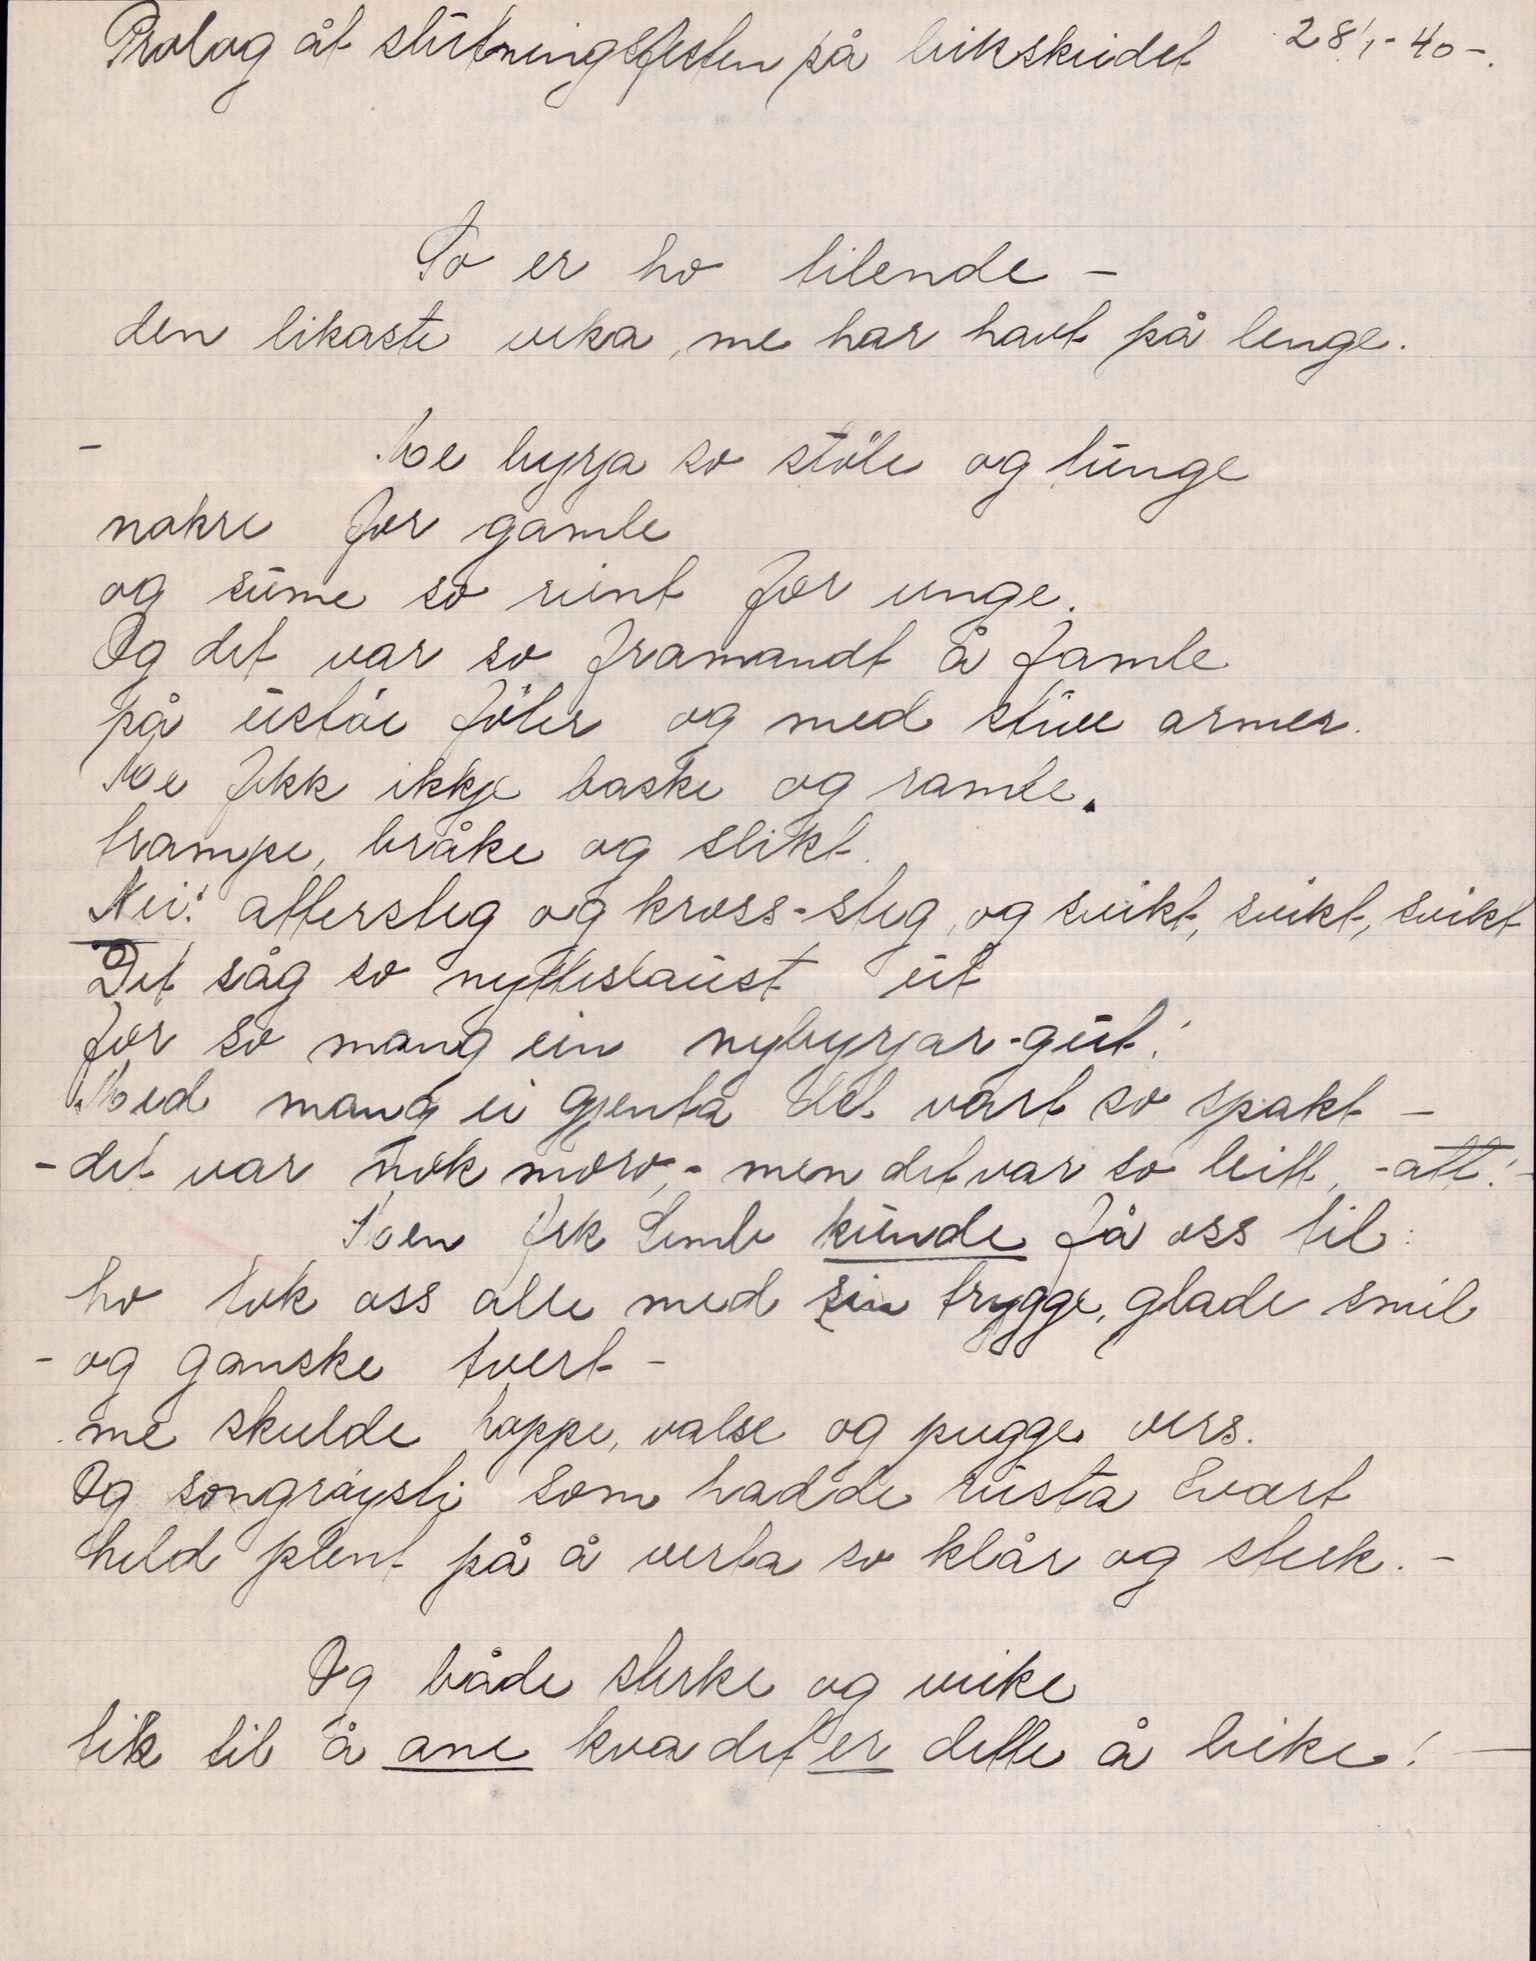 Prolog åt slutningsfesten på leikskeidet 28/1-40-.
So er ho tilende -
den likaste veka, me har havt på lenge.
- Me byrja so støle og tunge
nokre for gamle
og sume so reint for unge.
Og det var so framandt å famle
på ustøe føter og med stive armer.
Me fekk ikkje baske og ramle.
trampe, bråke og slikt.
Nei! attersteg og kross-steg, og svikt, svikt, svikt
Det såg so nytteslaust ut
for so mang ein nybyrjar-gut!
Med mang ei gjenta det vart so spakt -
- det var nok moro, - men det var so leitt, - att! -
Men frk Semb kunde få oss til:
ho tok oss alle med sin trygge, glade smil
- og ganske tvert -
me skulde hoppe, valse og pugge vers.
Og songrøysti som hadde rusta svært
held plent på å verta so klår og sterk. -
Og både sterke og veike
fik til å ane kva det er dette å leike! -